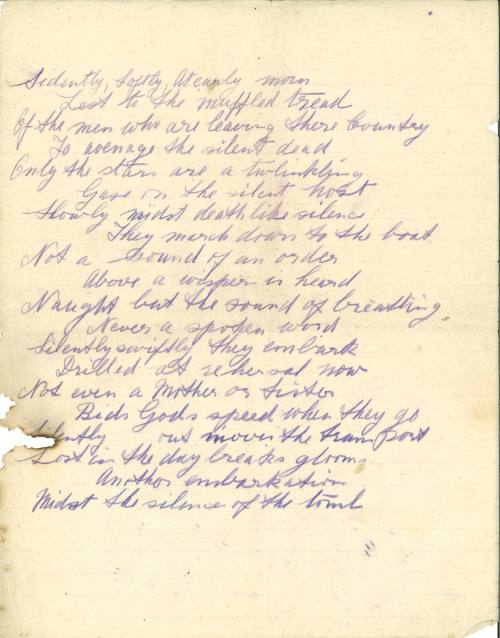 Sidently, Softly, At early morn
Lest to the muffled tread
Of the men who are leaving there Country
To avenage the silent dead
Only the stars are a twlinkling
Gase on the silent host
Slowly midst deathlike silence
They march down to the boat
Not a sound of an order
Above a wisper is heard
Naught but the sound of breatting
Never a spoken word
Silently swiftly they embark
Drilled at rehersal now
Not even a Mother or Sister
Bids Gods speed when they go
Silently out moves the transport
Lost in the day breaks gloom
Another embarkation
Midst the silence of the tomb